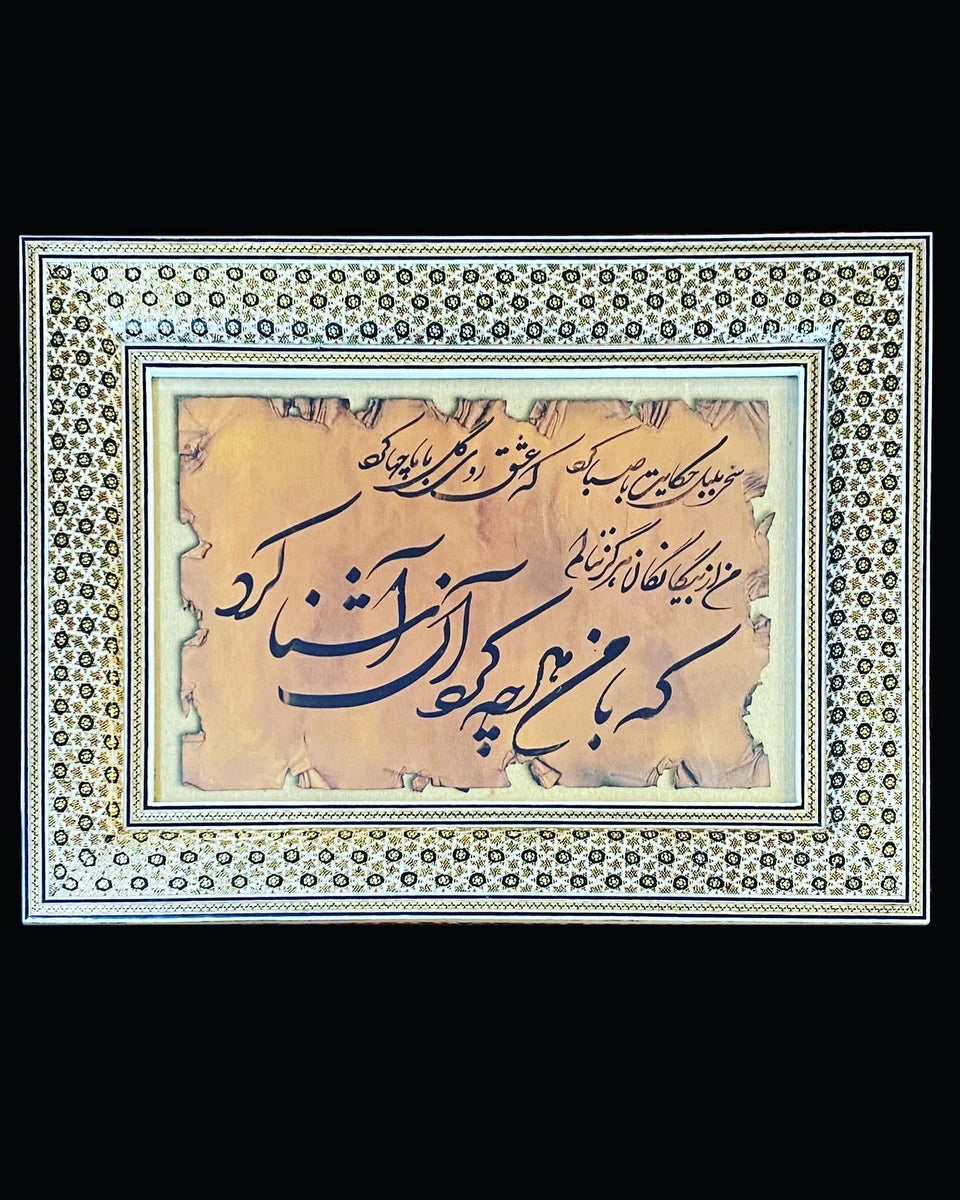 سحر بلبل حکایت با صبا کرد که عشق روی گل با ما چها کرد
من از بیگانگان هرگز ننالم
که با من هرچه کرد آن آشنا کرد